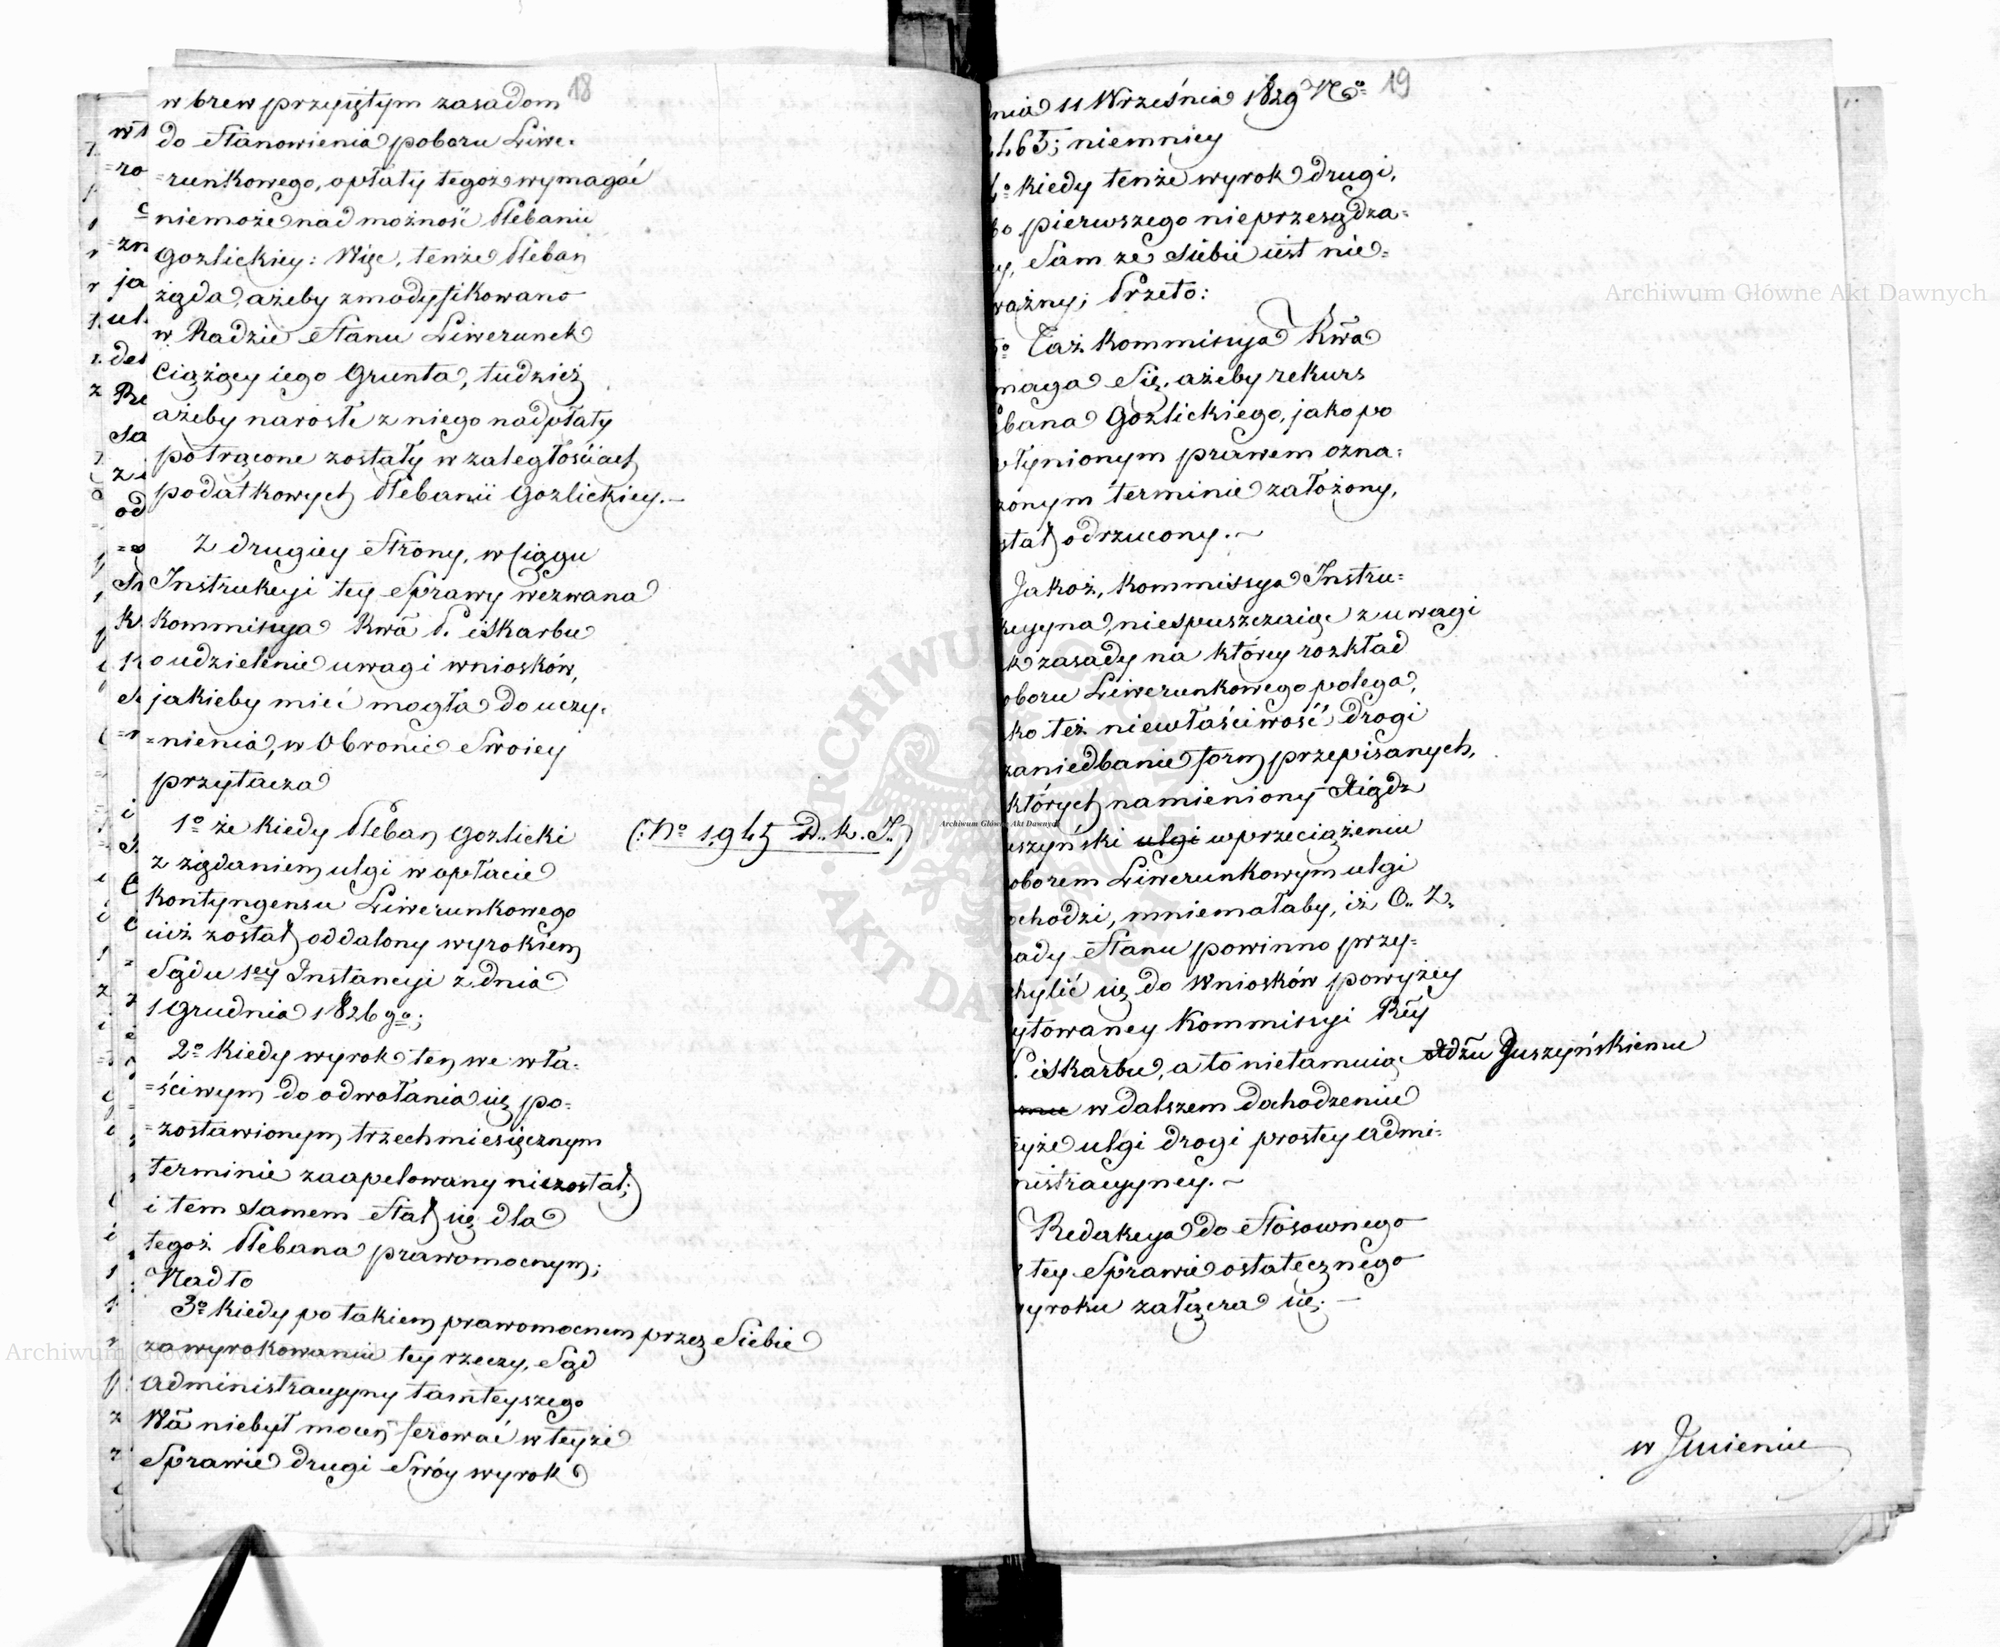 18
w brew przyiętym zasadom
do Stanowienia poboru Liwe-
=runkowego, opłaty tegoż wymagać
niemoże nad możność Plebanii
Gozlickiey: Więc, tenże Pleban
żąda, ażeby zmodyfikowano
w Radzie Stanu Liwerunek
Ciążący iego Grunta, tudzież
ażeby narosłe z niego nadpłaty
potrącone zostały w zaległościach
podatkowych Plebanii Gozlickiey.—
Z drugiey Strony, w Ciągu
Instrukcyi tey Sprawy wezwana
Kommissya Rwa P. i Skarbu
o udzielenie uwagi wniosków,
jakieby mieć mogła do uczy-
=nienia, w Obronie Swoiey
przytacza
1º że kiedy Pleban Gozlicki
(:Nº 1,945 D.. K. J..)
z żądaniem ulgi w opłacie
Kontyngensu Liwerunkowego
iuż został oddalony wyrokiem
Sądu 1ey Instancyi z dnia
1 Grudnia 1826 go;
2º kiedy wyrok ten we wła-
=ściwym do odwołania się po-
=zostawionym trzechmiesięcznym
terminie zaapelowany niezostał;
i tem samem Stał się dla
tegoż Plebana prawomocnym;
Nadto
3º kiedy po takiem prawomocnem przez Siebie
zawyrokowaniu tey rzeczy, Sąd
Administracyyny tamteyszego
Wa niebył mocen ferować w teyże
Sprawie drugi Swóy wyrok
19
nia 11 Września 1829 No
465; niemniey
kiedy tenże wyrok drugi,
pierwszego nieprzesądza-
Sam ze siebie iest nie-
ważny; Przeto:
Taż Kommissya Rwa
maga Się, ażeby rekurs
bana Gozlickiego, jako po
płynionym prawem ozna-
zonym terminie założony,
stał odrzucony.—
Jakoż, Kommissya Instru-
kcyyna, niespuszczaiąc z uwagi
k zasady na którey rozkład
oboru Liwerunkowego polega,
ko też niewłaściwość drogi
zaniedbanie form przepisanych,
których namieniony Xiądz
uszyński ulgi w przeciążeniu
oborem Liwerunkowym ulgi
ochodzi, mniemałaby, iż O.. Z..
ady Stanu powinno przy-
hylić się do wniosków powyżey
ytowaney Kommissyi Rey
P. i Skarbu, a to nietamuiąc Xdzu Juszyńskiemu
w dalszem dochodzeniu
eyże ulgi drogi prostey Admi-
nistracyyney.—
Redakcya do Stosownego
tey Sprawie ostatecznego
yroku załącza się.—
w Imieniu
Archiwum Główne Akt Dawnych
Archiwum Główne Akt Dawnych
Archiwum Główne Akt Dawnych